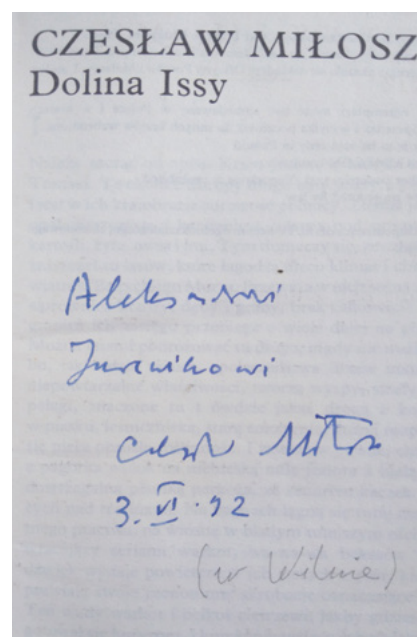 CZESŁAW MIŁOSZ
Dolina Issy
Aleksandrowi
Jurewiczowi
Czesław Miłosz
3. VI 92
(w Wilnie)